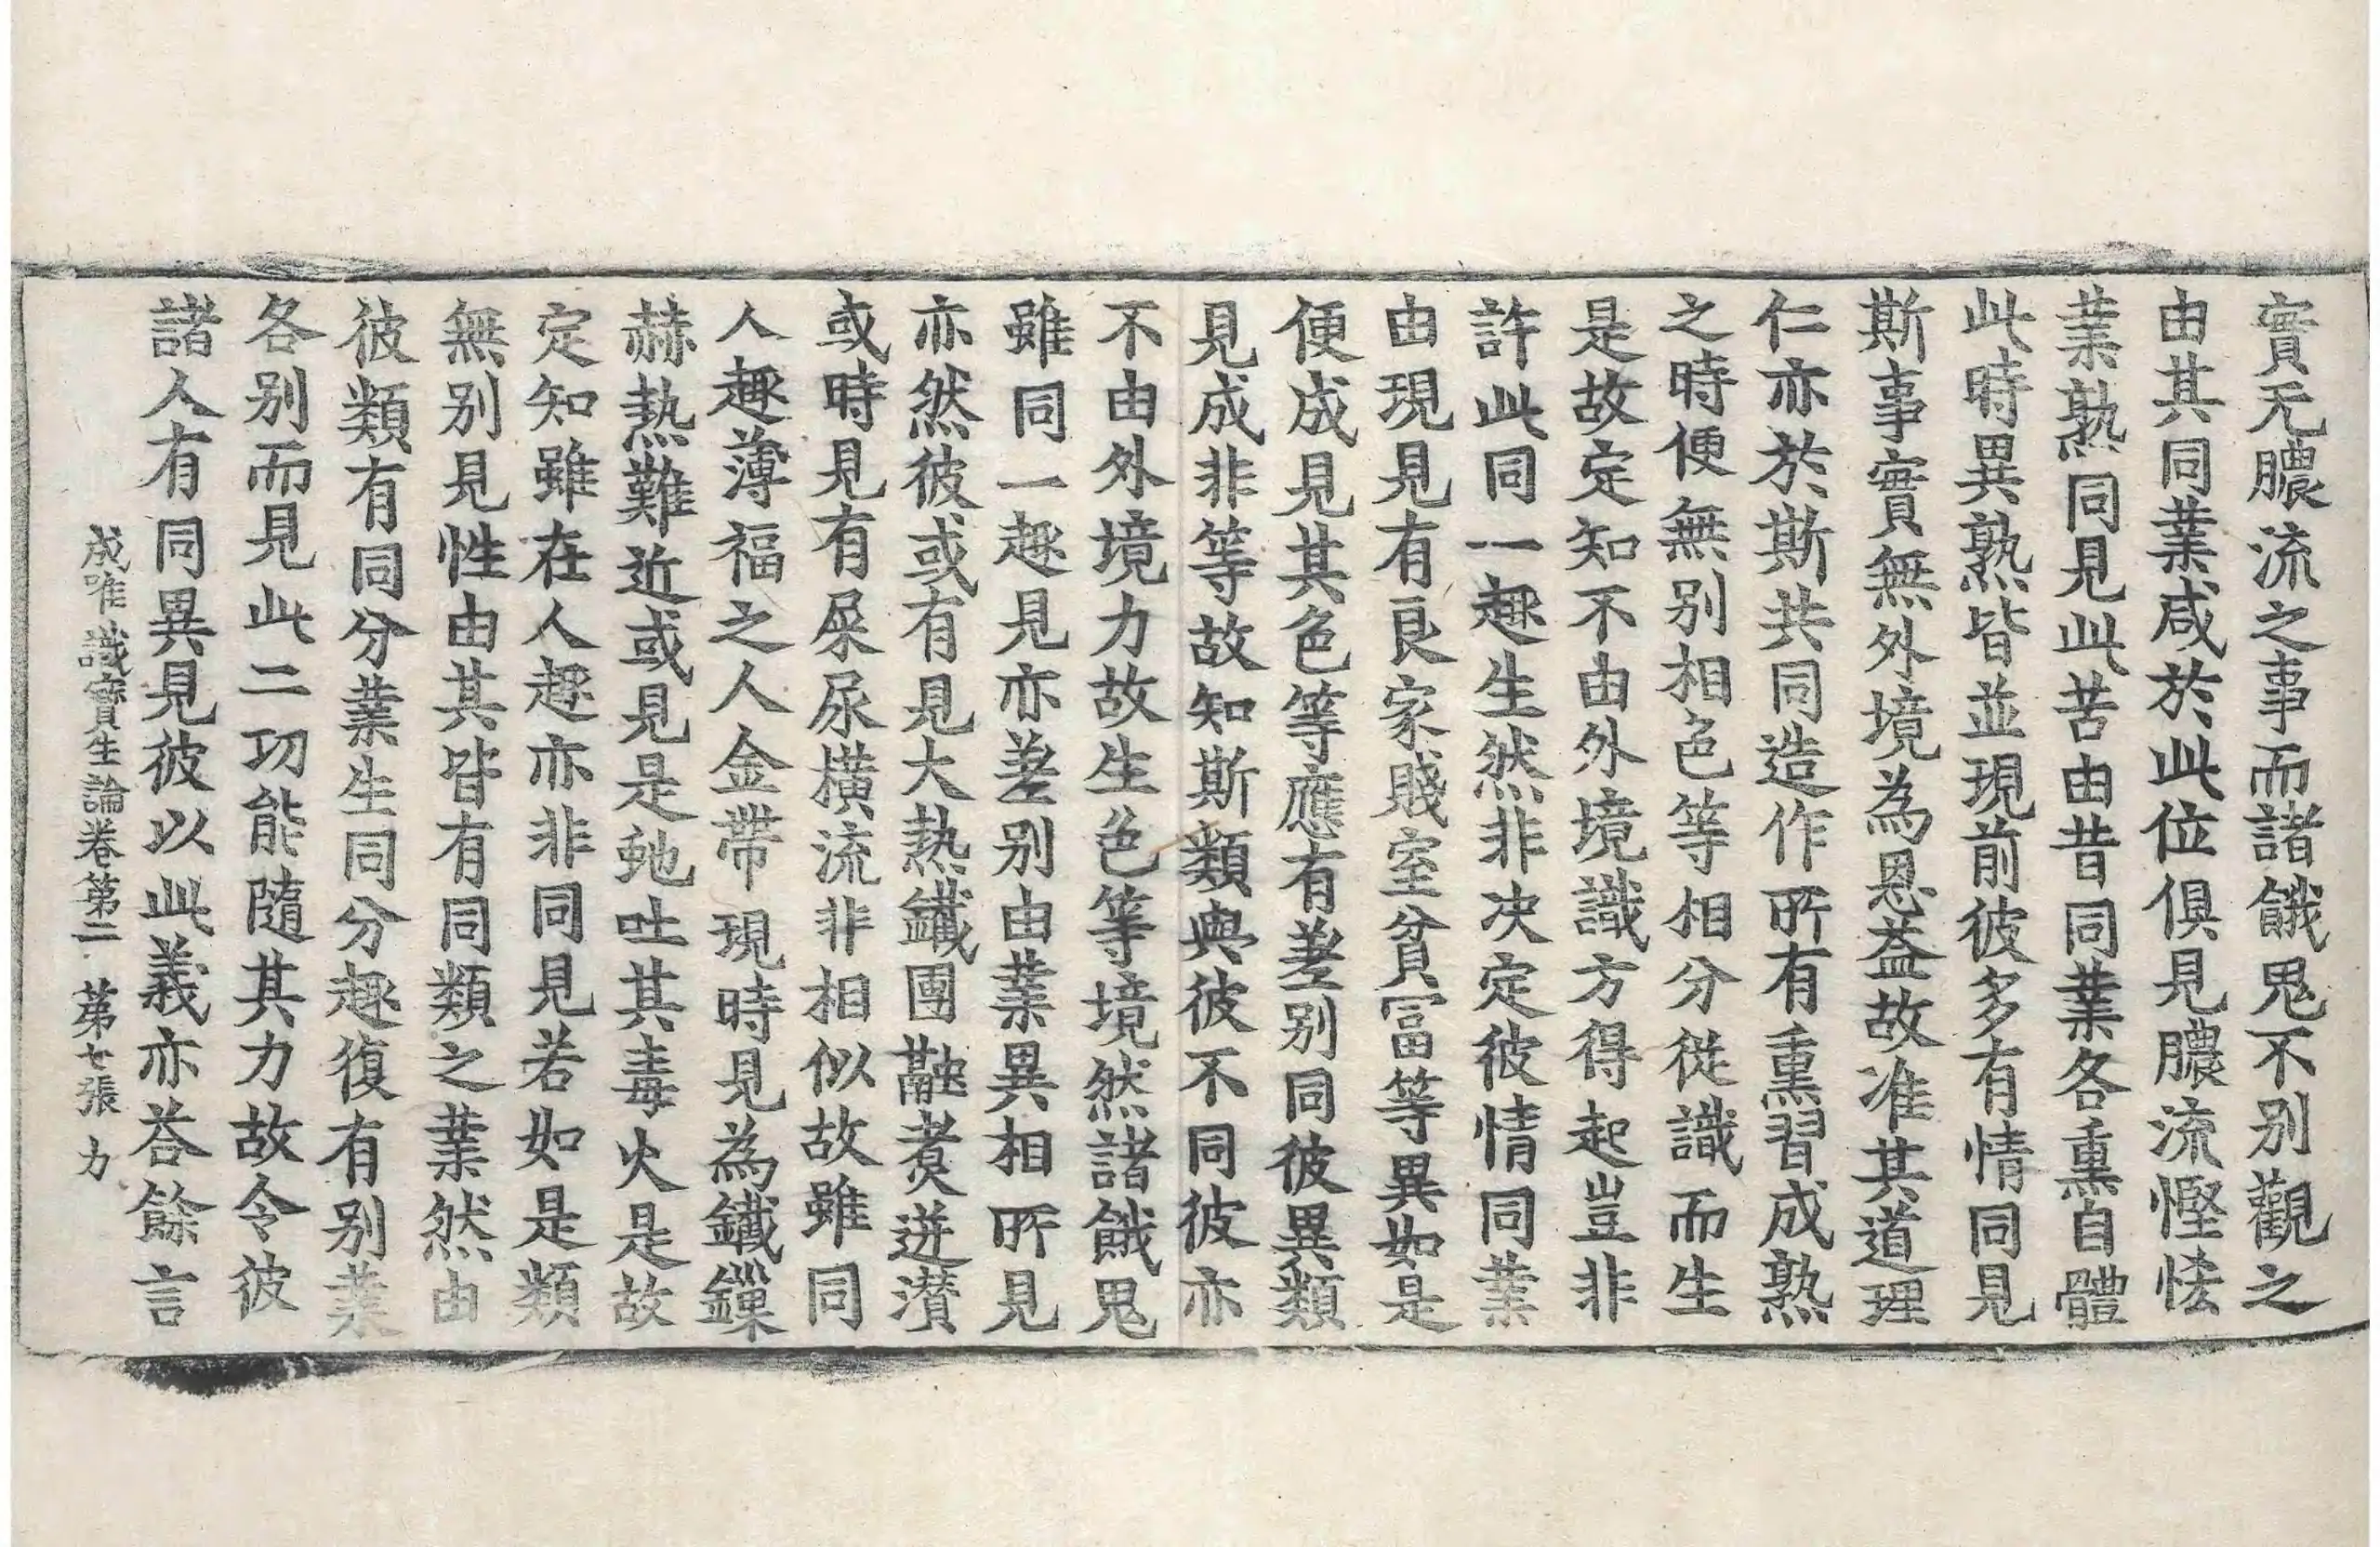 實无膿流之事而諸餓鬼不別觀之
由其同業咸於此位俱見膿流慳悋
業熟同見此苦由昔同業各熏自體
此時異熟皆並現前彼多有情同見
斯事實無外境為恩益故准其道理
仁亦於斯共同造作所有熏習成熟
之時便無別相色等相分從識而生
是故定知不由外境識方得起豈非
許此同一趣生然非决定彼情同業
由現見有良家賤室貧冨等異如是
便成見其色等應有差別同彼異類
見成非等故知斯類與彼不同彼亦
不由外境力故生色等境然諸餓鬼
雖同一趣見亦差別由業異相所見
亦然彼或有見大熱鐵團融煑迸灒
或時見有屎尿橫流非相似故雖同
人趣薄福之人金帶現時見為鐵鏁
赫熱難近或見是虵吐其毒火是故
定知雖在人趣亦非同見若如是類
無別見性由其皆有同類之業然由
彼類有同分業生同分趣復有別業
各別而見此二功能隨其力故令彼
諸人有同異見彼以此義亦荅餘言
成唯識寶生論卷第二 第七張 力